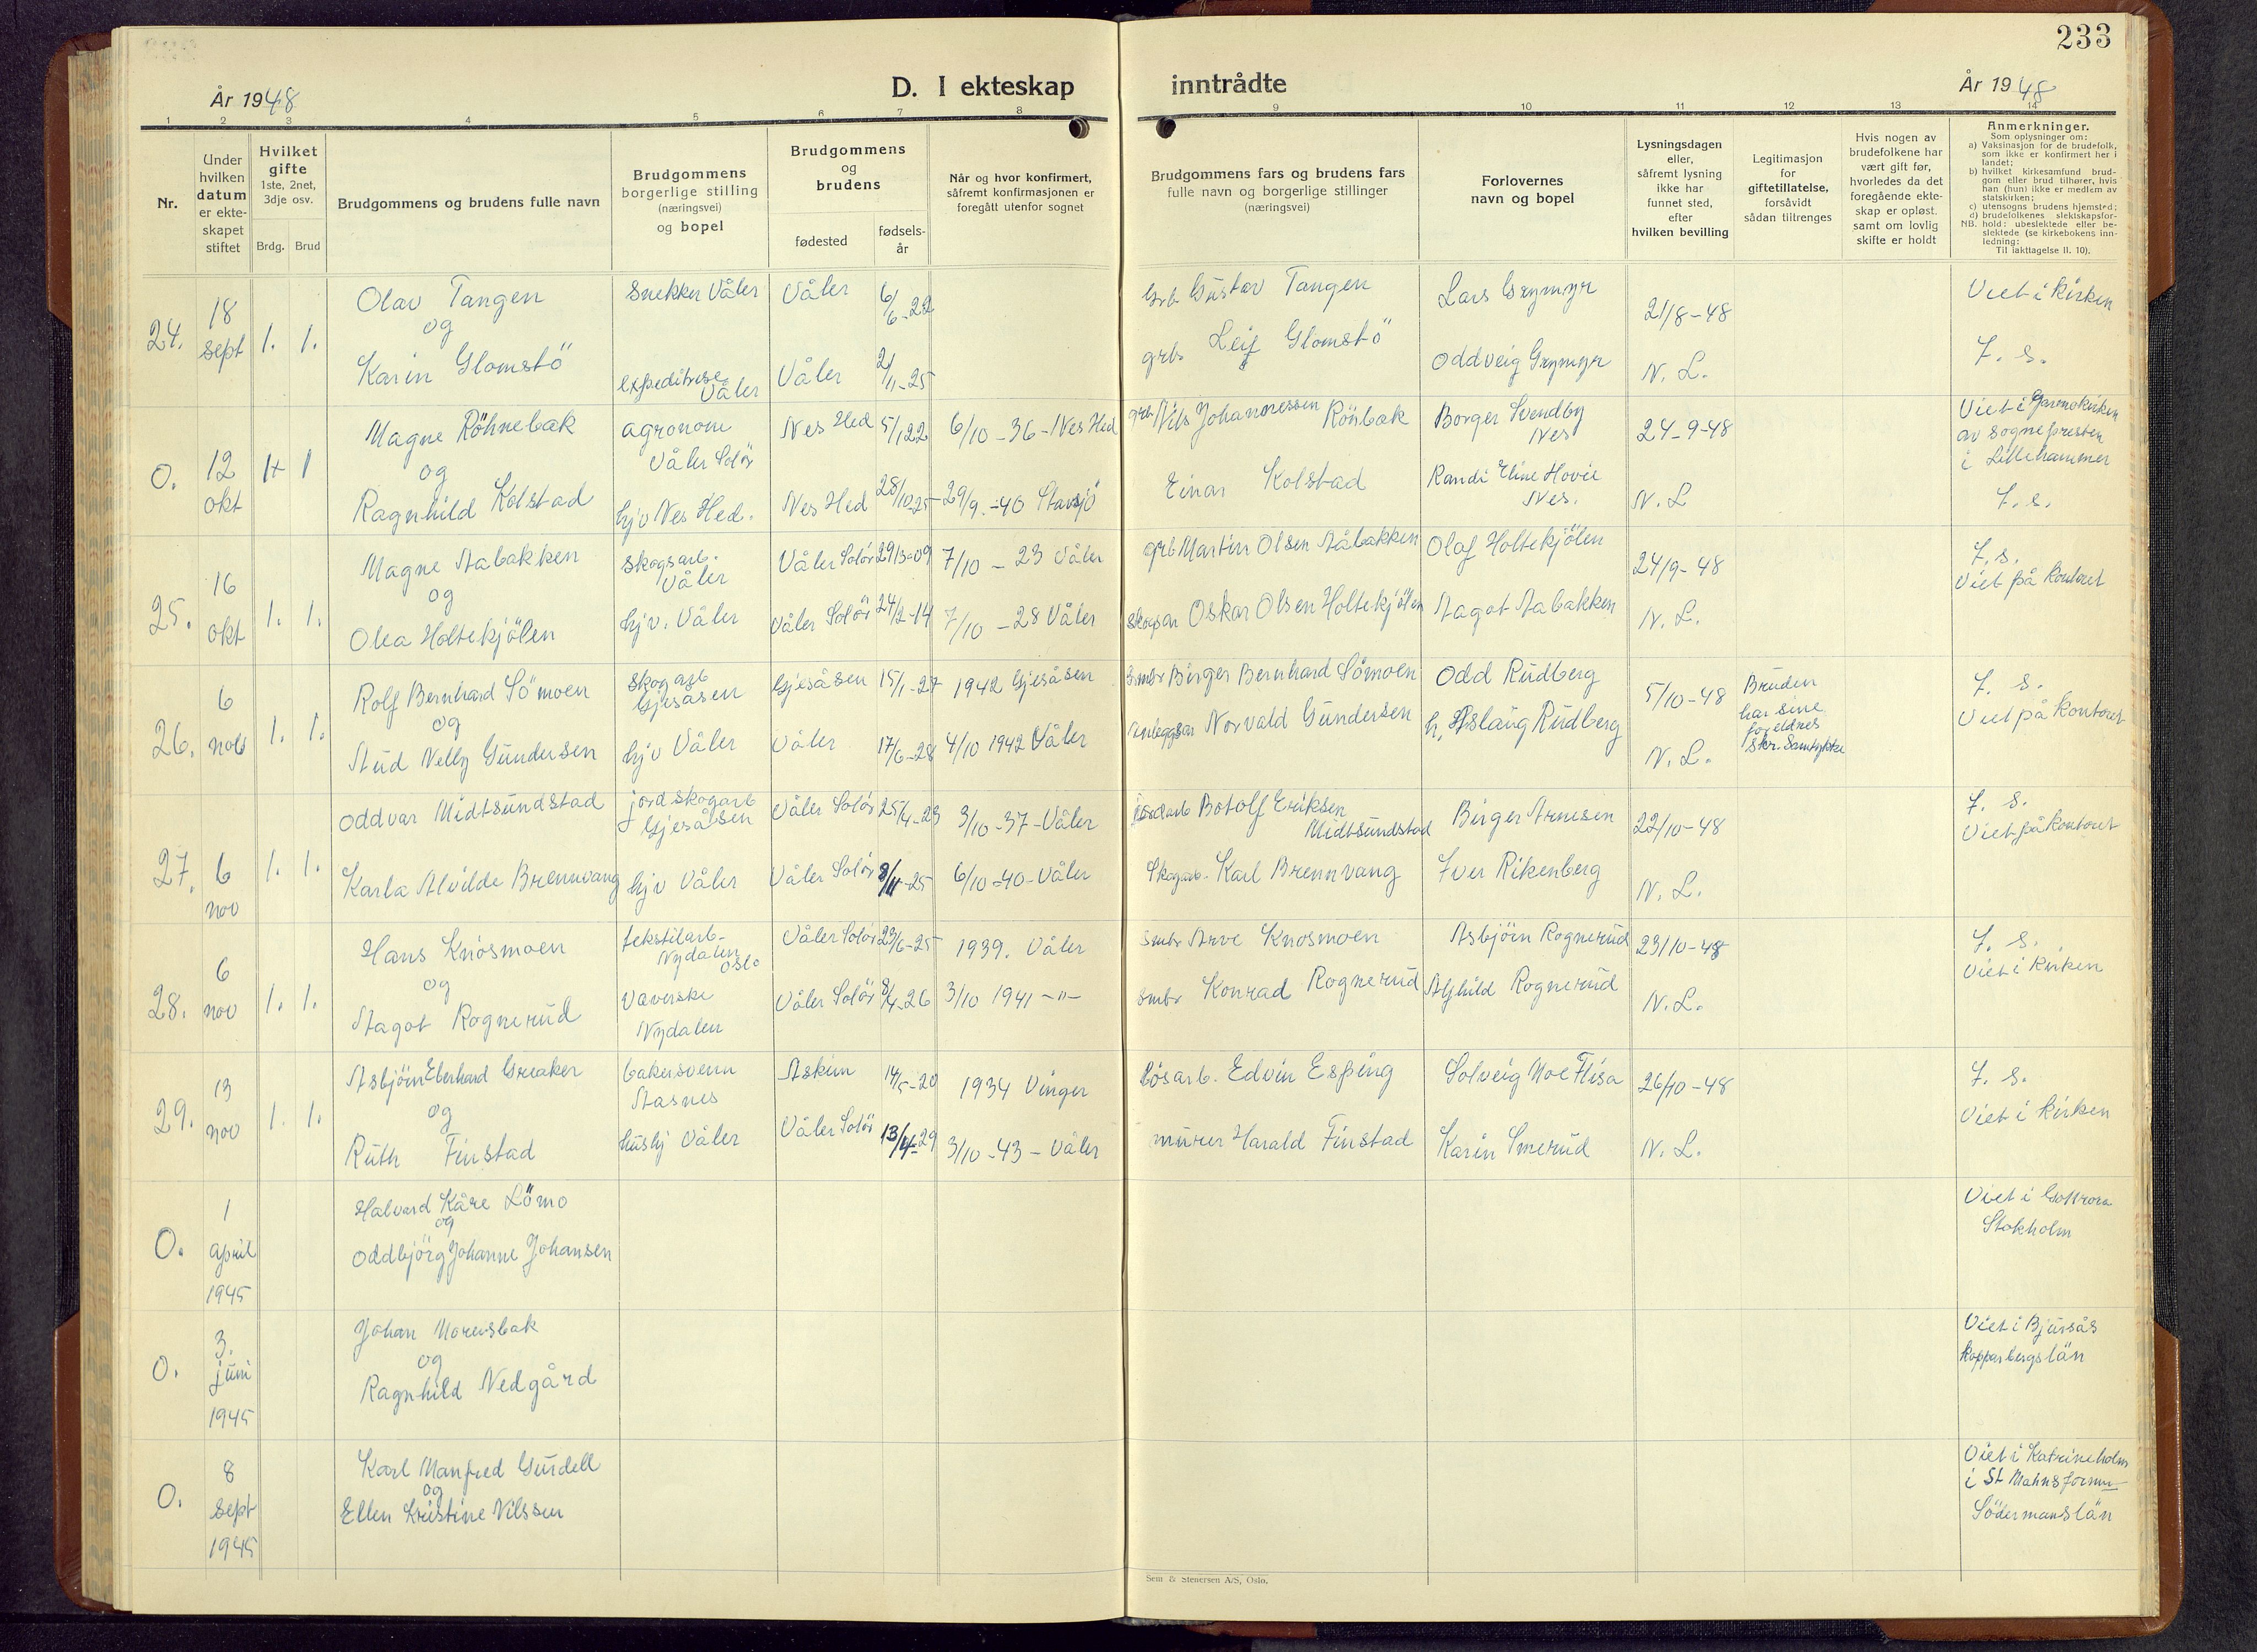 233
År 1948
D. I ekteskap
inntrådte
År 1948
1 2 3 4 5 6 7 8 9 10 11 12 13 14
Nr.
Under
hvilken
datum
er ekte-
skapet
stiftet
Hvilket
gifte
1ste, 2net,
3dje osv.
Brdg. Brud
Brudgommens og brudens fulle navn
Brudgommens
borgerlige stilling
(næringsvei)
og bopel
Brudgommens
og
brudens
fødested
fødsels-
år
Når og hvor konfirmert,
såfremt konfirmasjonen er
foregått utenfor sognet
Brudgommens fars og brudens fars
fulle navn og borgerlige stillinger
(næringsvei)
Forlovernes
navn og bopel
Lysningsdagen
eller,
såfremt lysning
ikke har
funnet sted,
efter
hvilken bevilling
Legitimasjon
for
giftetillatelse,
forsåvidt
sådan tiltrenges
Hvis nogen av
brudefolkene har
vært gift før,
hvorledes da det
foregående ekte-
skap er opløst.
samt om lovlig
skifte er holdt
Anmerkninger.
Som oplysninger om:
a) Vaksinasjon for de brudefolk,
som ikke er konfirmert her i
landet;
b) hvilket kirkesamfund brud-
gom eller brud tilhører, hvis
han (hun) ikke er medlem av
statskirken;
c) utensogns brudens hjemsted;
d) brudefolkenes slektskapsfor-
hold: ubeslektede eller be-
slektede (se kirkebokens inn-
ledning;
NB.
Til iakttagelse II. 10).
24.
18
sept
1. 1.
Olav Tangen
og
Karin Glomstö
Snekker Våler
expeditrise
Våler
Våler
Våler
6/6-22
2/11-25
Grb Gustav Tangen
grb. Leif Glomstö
Lars Grymyr
Oddveig Grymyr
21/8-48
N. L.
Viet i kirken
F. s.
0.
12
okt
1+ 1
Magne Röhnebak
og
Ragnhild Kolstad
agronom
Våler Solör
hjv Nes Hed.
Nes Hed
Nes Hed
5/1 22
28/10 25
6/10-36-Nes Hed
29/9-40 Stavsjö
grb Nils Johannessen Rönbak
Einar Kolstad
Borger Svendby
Nes
Randi Eline Hovie
Nes.
24-9-48
N. L
Viet i Garmokirken
av Sognepresten
i Lillehammer
F. s.
25.
16
okt
1. 1.
Magne Aabakken
og
Olea Holtekjölen
skogsarb.
Våler
hjv. Våler
Våler Solör
Våler Solör
29/3-09
24/2-14
7/10 - 23 Våler
7/10 - 28 Våler
grb Martin Olsen Aabakken
skogsar Oskar Olsen Holtekjölen
Olaf Holtekjölen
Aagot Aabakken
24/9-48
N. L.
F. s.
Viet på kontoret
26.
6
nov
1. 1.
Rolf Bernhard Sömoen
og
Aud Nelly Gundersen
skogarb
Gjesåsen
hjv Våler
Gjesåsen
Våler
15/1-27
17/6-28
1942 Gjesåsen
4/10 1942 Våler
Smbr Birger Bernhard Sömoen
Anleggsar Norvald Gundersen
Odd Rudberg
h. Aslaug Rudberg
5/10-48
N. L.
Bruden
har sine
foreldres
Skr. Samtykke
F. s.
Viet på kontoret
27.
6
nov
1. 1.
Oddvar Midtsundstad
Karla Alvilde Brennvang
jord skogarb
Gjesåsen
hjv Våler
Våler Solör
Våler Solör
25/4-23
8/11-25
3/10-37-Våler
6/10-40-Våler
jordarb Botolf Eriksen
Midtsundstad
Skogarb. Karl Brennvang
Birger Arnesen
Iver Rikenberg
22/10-48
N. L.
F. s.
Viet på kontoret
28.
6
nov
1. 1.
Hans Knosmoen
og
Aagot Rognerud
tekstilarb-
Nydalen
Oslo
Væverske
Nydalen
Våler Solör
Våler Solör
23/6-25
8/4-26
1939. Våler
3/10 1941 -"-
Smbr Arve Knosmoen
Smbr Konrad Rognerud
Asbjörn Rognerud
Alfhild Rognerud
23/10-48
N. L.
F. s.
Viet i kirken
29.
13
nov
1. 1.
Asbjörn Eberhard Greaker
og
Ruth Finstad
bakersvenn
Aasnes
Hushj Våler
Askim
Våler Solör
14/5-20
13/4-29
1934 Vinger
3/10-43-Våler
lösarb. Edvin Esping
murer Harald Finstad
Solveig Moe Flisa
Karin Smerud
26/10-48
N. L.
F. s.
Viet i kirken
0.
1
april
1945
Halvard Kåre Lömo
og
Oddbjörg Johanne Johansen
Viet i
Stokholm
0.
3.
juni
1945
Johan
og
Ragnhild Nedgård
Viet i Bjursås
Kopparbergs län
0.
8
sept
1945
Karl Manfred Gurdell
og
Ellen Kristine Nilssen
Viet i Katrineholm
i St
Södermans län
Sem & Stenersen A/S, Oslo.